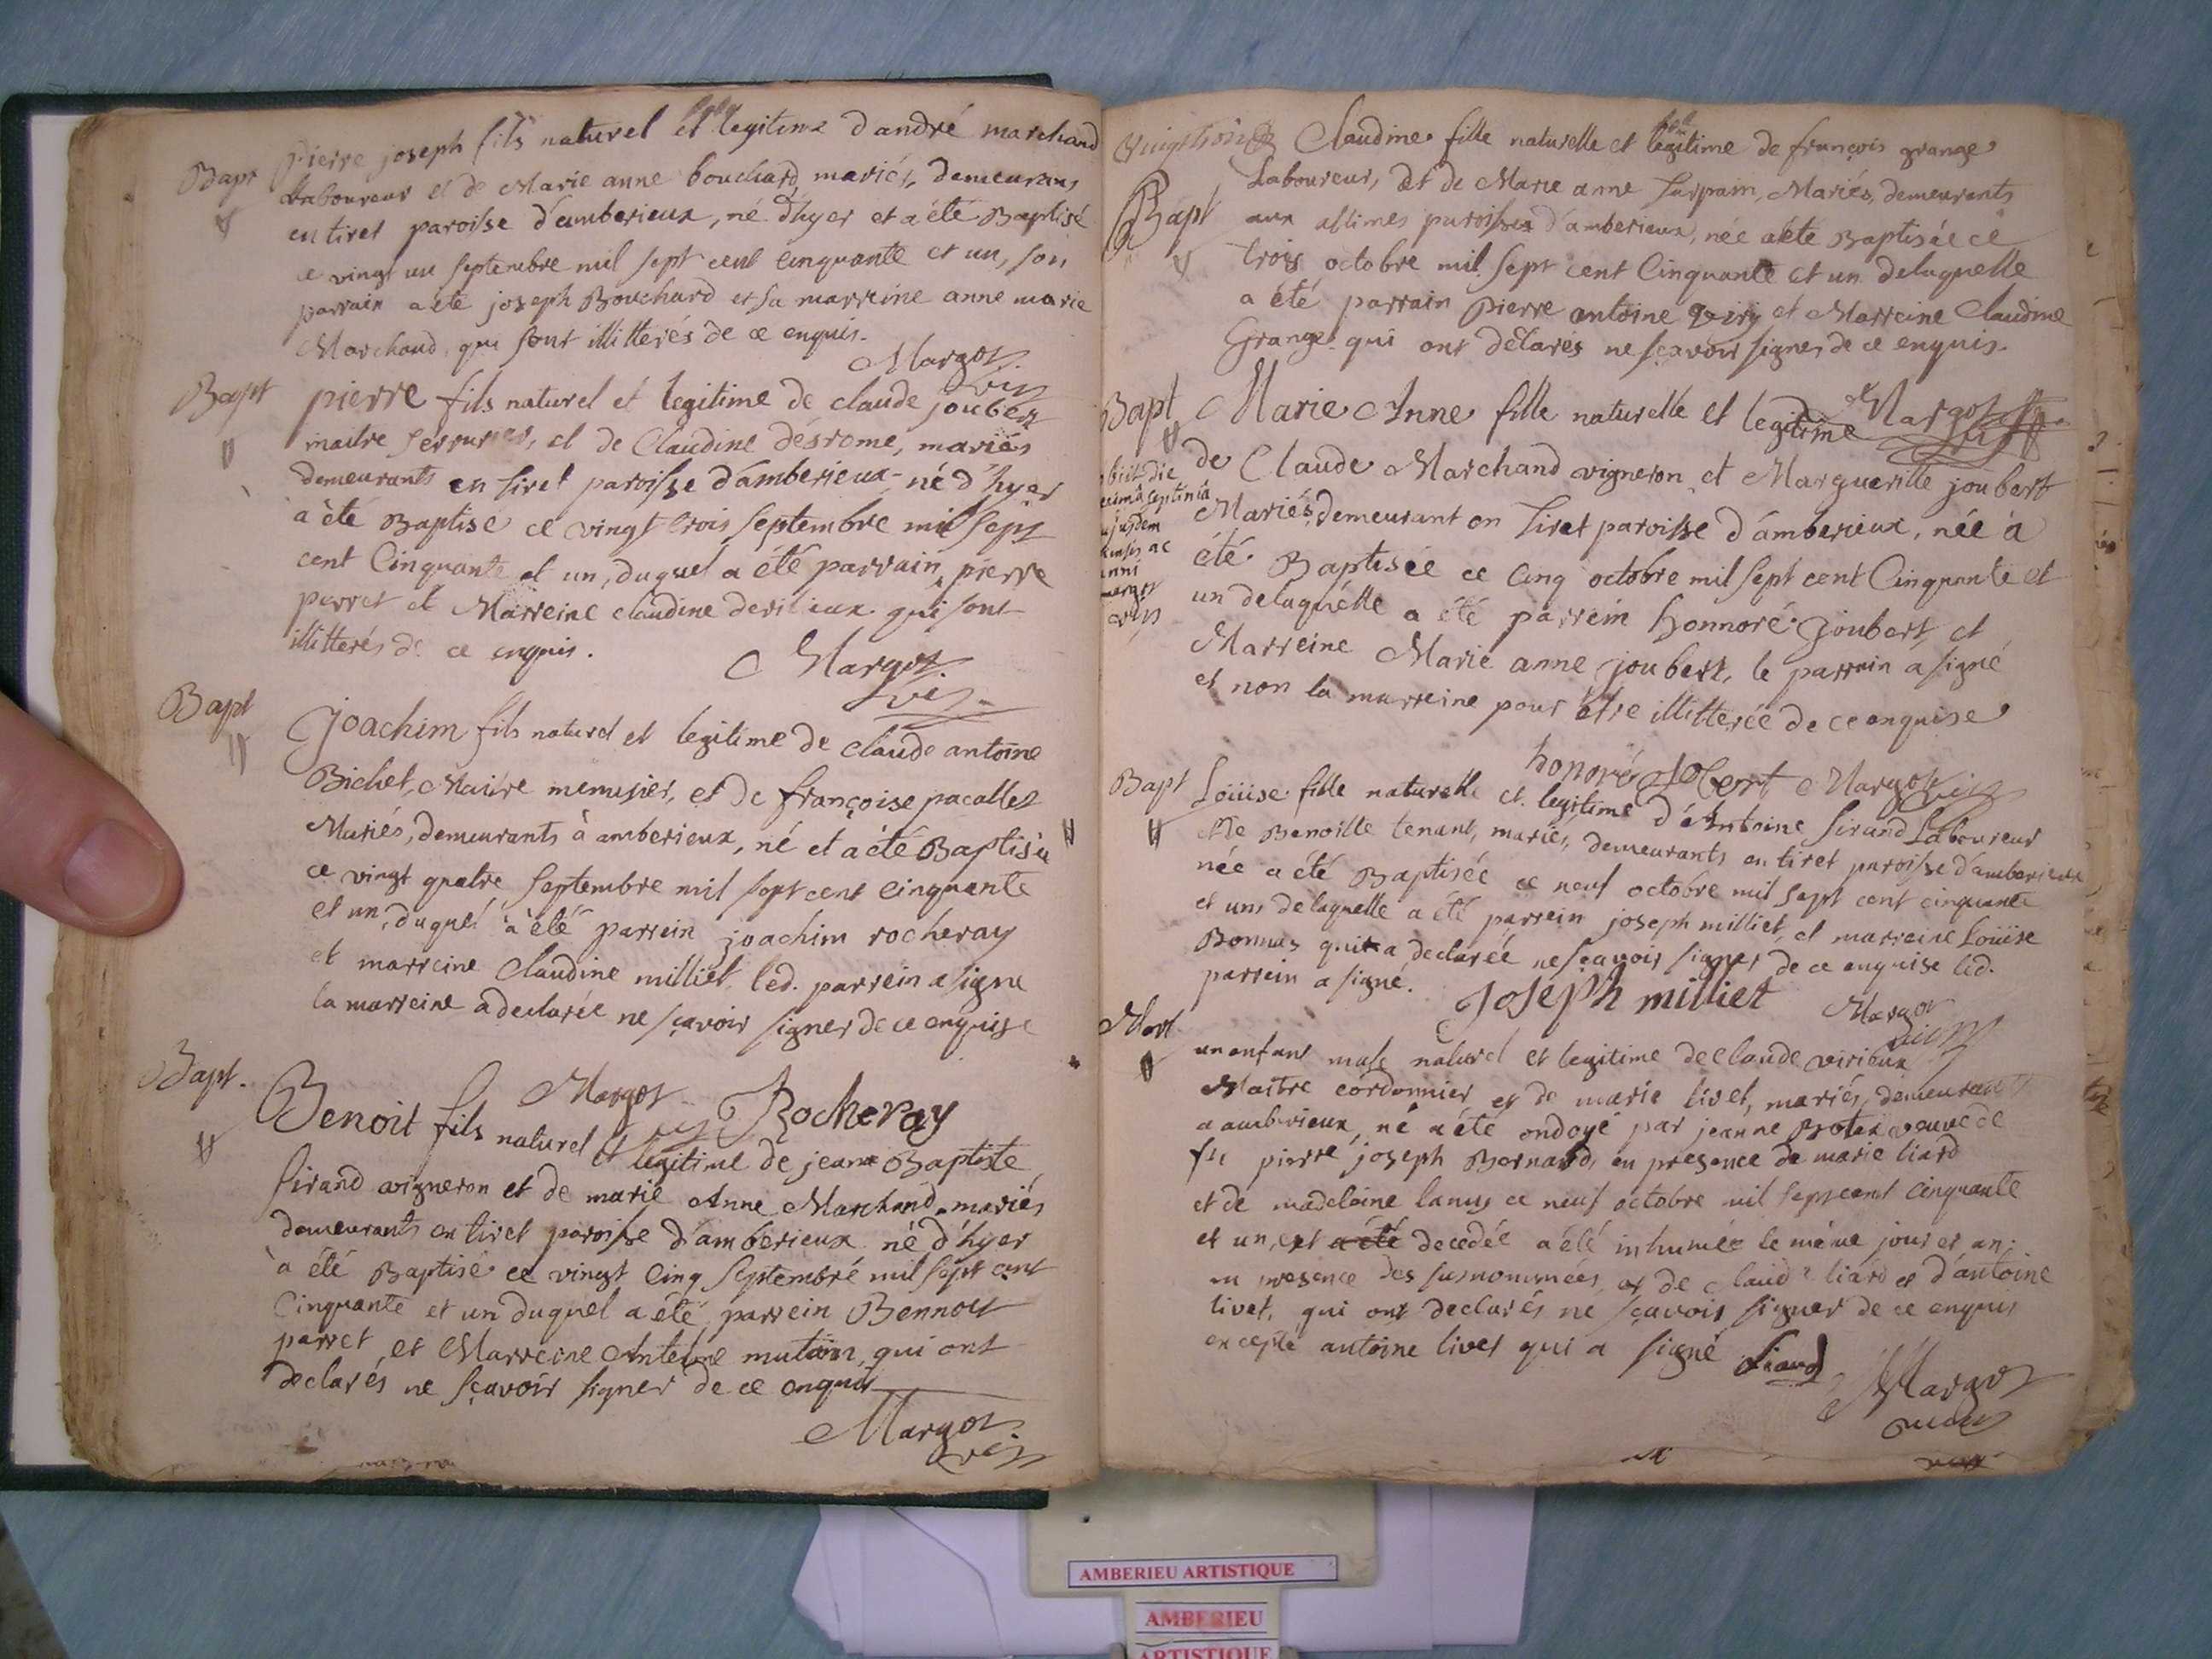 Bapt
pierre joseph fils naturel et legitime d'andré marchand
Laboureur et de Marie anne bouchard, mariés, demeurans
en tiret paroisse d'amberieux, né d'hyer et a été Baptisé
ce vingt un septembre mil sept cent cinquante et un, son
parrain a été joseph Bouchard et sa marreine anne marie
Marchand, qui sont illitterés de ce enquis.
Margot
vic
Bapt
pierre fils naturel et legitime de claude joubert
maitre serrurier, et de Claudine désrome, mariés
demeurants en tiret paroisse d'amberieux né d'hyer
à été Baptisé ce vingt trois septembre mil sept
cent Cinquante et un, duquel a été parrain pierre
perret et Marreine claudine qui sont
illitterés de ce enquis.
Margot
vic
Bapt
Joachim fils naturel et legitime de claude antoine
Bichet, Maitre menusier, et de françoise pacallet
Mariés, demeurants à amberieux, né et a été Baptisé
ce vingt quatre septembre mil sept cent cinquante
et un, duquel à été parrein joachim rocheray
et marreine claudine milliet, led. parrein a signe
la marreine a declarée ne sçavoir signer de ce enquise
Margot
vic Rocheray
Bapt.
Benoit fils naturel et legitime de jean Baptiste
Sirand vigneron et de marie Anne Marchand mariés
demeurants en tiret paroisse d'amberieux né d'hyer
à été Baptisé ce vingt cinq septembre mil sept cent
Cinquante et un duquel a été parrein Bennoit
parret et Marreine Antoine mutain, qui ont
declarés ne sçavoir signer de ce enquis
Margot
vic
Claudine fille naturelle et legitime de françois grange
Bapt
Laboureur, et de Marie anne Surpain, Mariés, demeurants
aux allimes paroisse d'amberieux, née a été Baptisée ce
trois octobre mil sept cent Cinquante et un delaquelle
a été parrain pierre antoine et Marreine Claudine
Grange qui ont délarés ne sçavoir signer de ce enquis.
Margot
Bapt
Marie Anne fille naturelle et legitime
de Claude Marchand vigneron et Marguerite joubert
Mariés, demeurant en tiret paroisse d'amberieux, née à
été Baptisée ce cinq octobre mil sept cent Cinquante et
un delaquelle a été parrein honnoré joubert, et
Marreine Marie anne joubert, le parrein a signé
et non la marreine pour être illitterée de ce enquise
obiit die
decimâ septimâ
ejusdem
mensis ac
anni
margot
vic
honoré jobert Margot vic
Bapt
Loüise fille naturelle et legitime d'Antoine Sirand Laboureur
et de Benoitte tenant, mariés, demeurants en tiret paroisse d'amberieux
née a été Baptisée ce neuf octobre mil sept cent cinquante
et un, delaquelle a été parrein joseph milliet, et marreine Loüise
Bonnus qui a declarée ne sçavoir signer de ce enquise led.
parrein a signé.
Joseph milliet
Margot
vic
Mort
un enfant male naturel et legitime de claude virieux
Maitre cordonnier et de marie livet, mariés, demeurants
a amberieux, né a été ondoyé par jeanne veuve de
fu pierre joseph Bernard, en presence de marie liard
et de madeleine lanus ce neuf octobre mil sept cent cinquante
et un, et a été decedée a été inhumée le même jour et an
en presence des susnommées, et de claude liard et d'antoine
livet, qui ont declarés ne sçavoir signer de ce enquis
excepté antoine livet qui a signé
Margot
AMBERIEU ARTISTIQUE
AMBERIEU
ARTISTIQUE